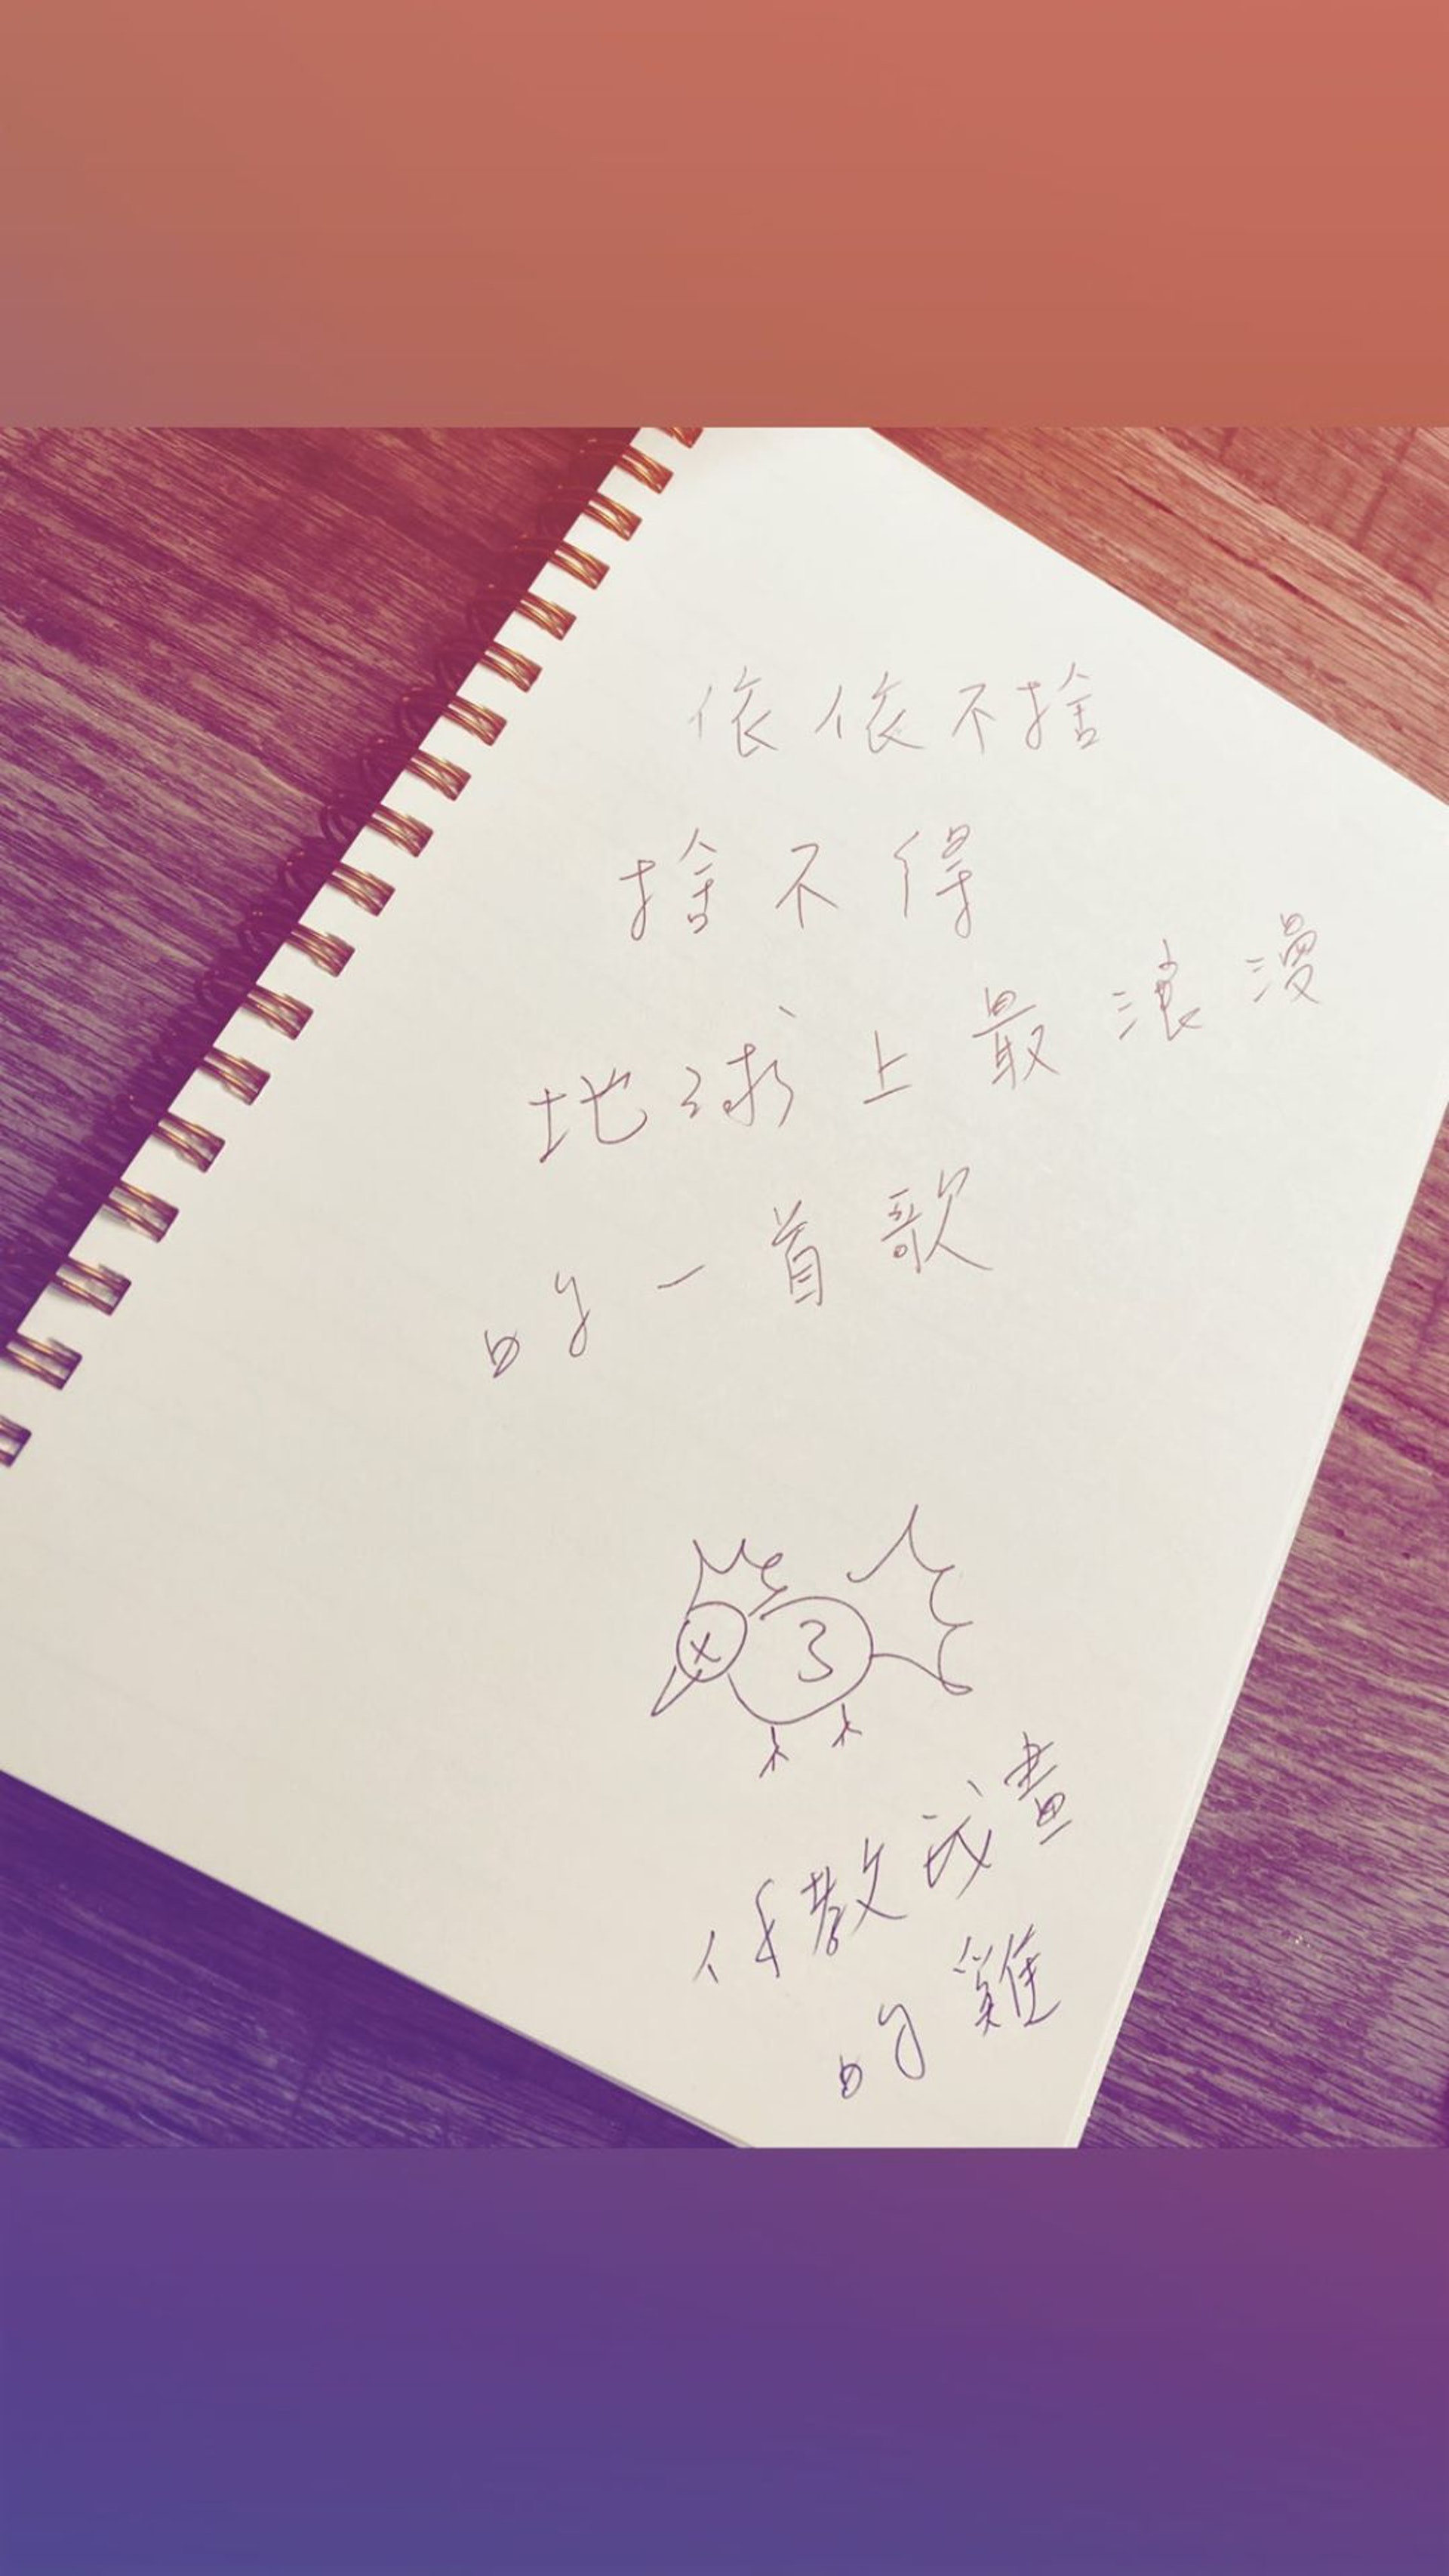 依依不捨
捨不得
地球上最浪漫
的一首歌
3
你教我畫
的雞